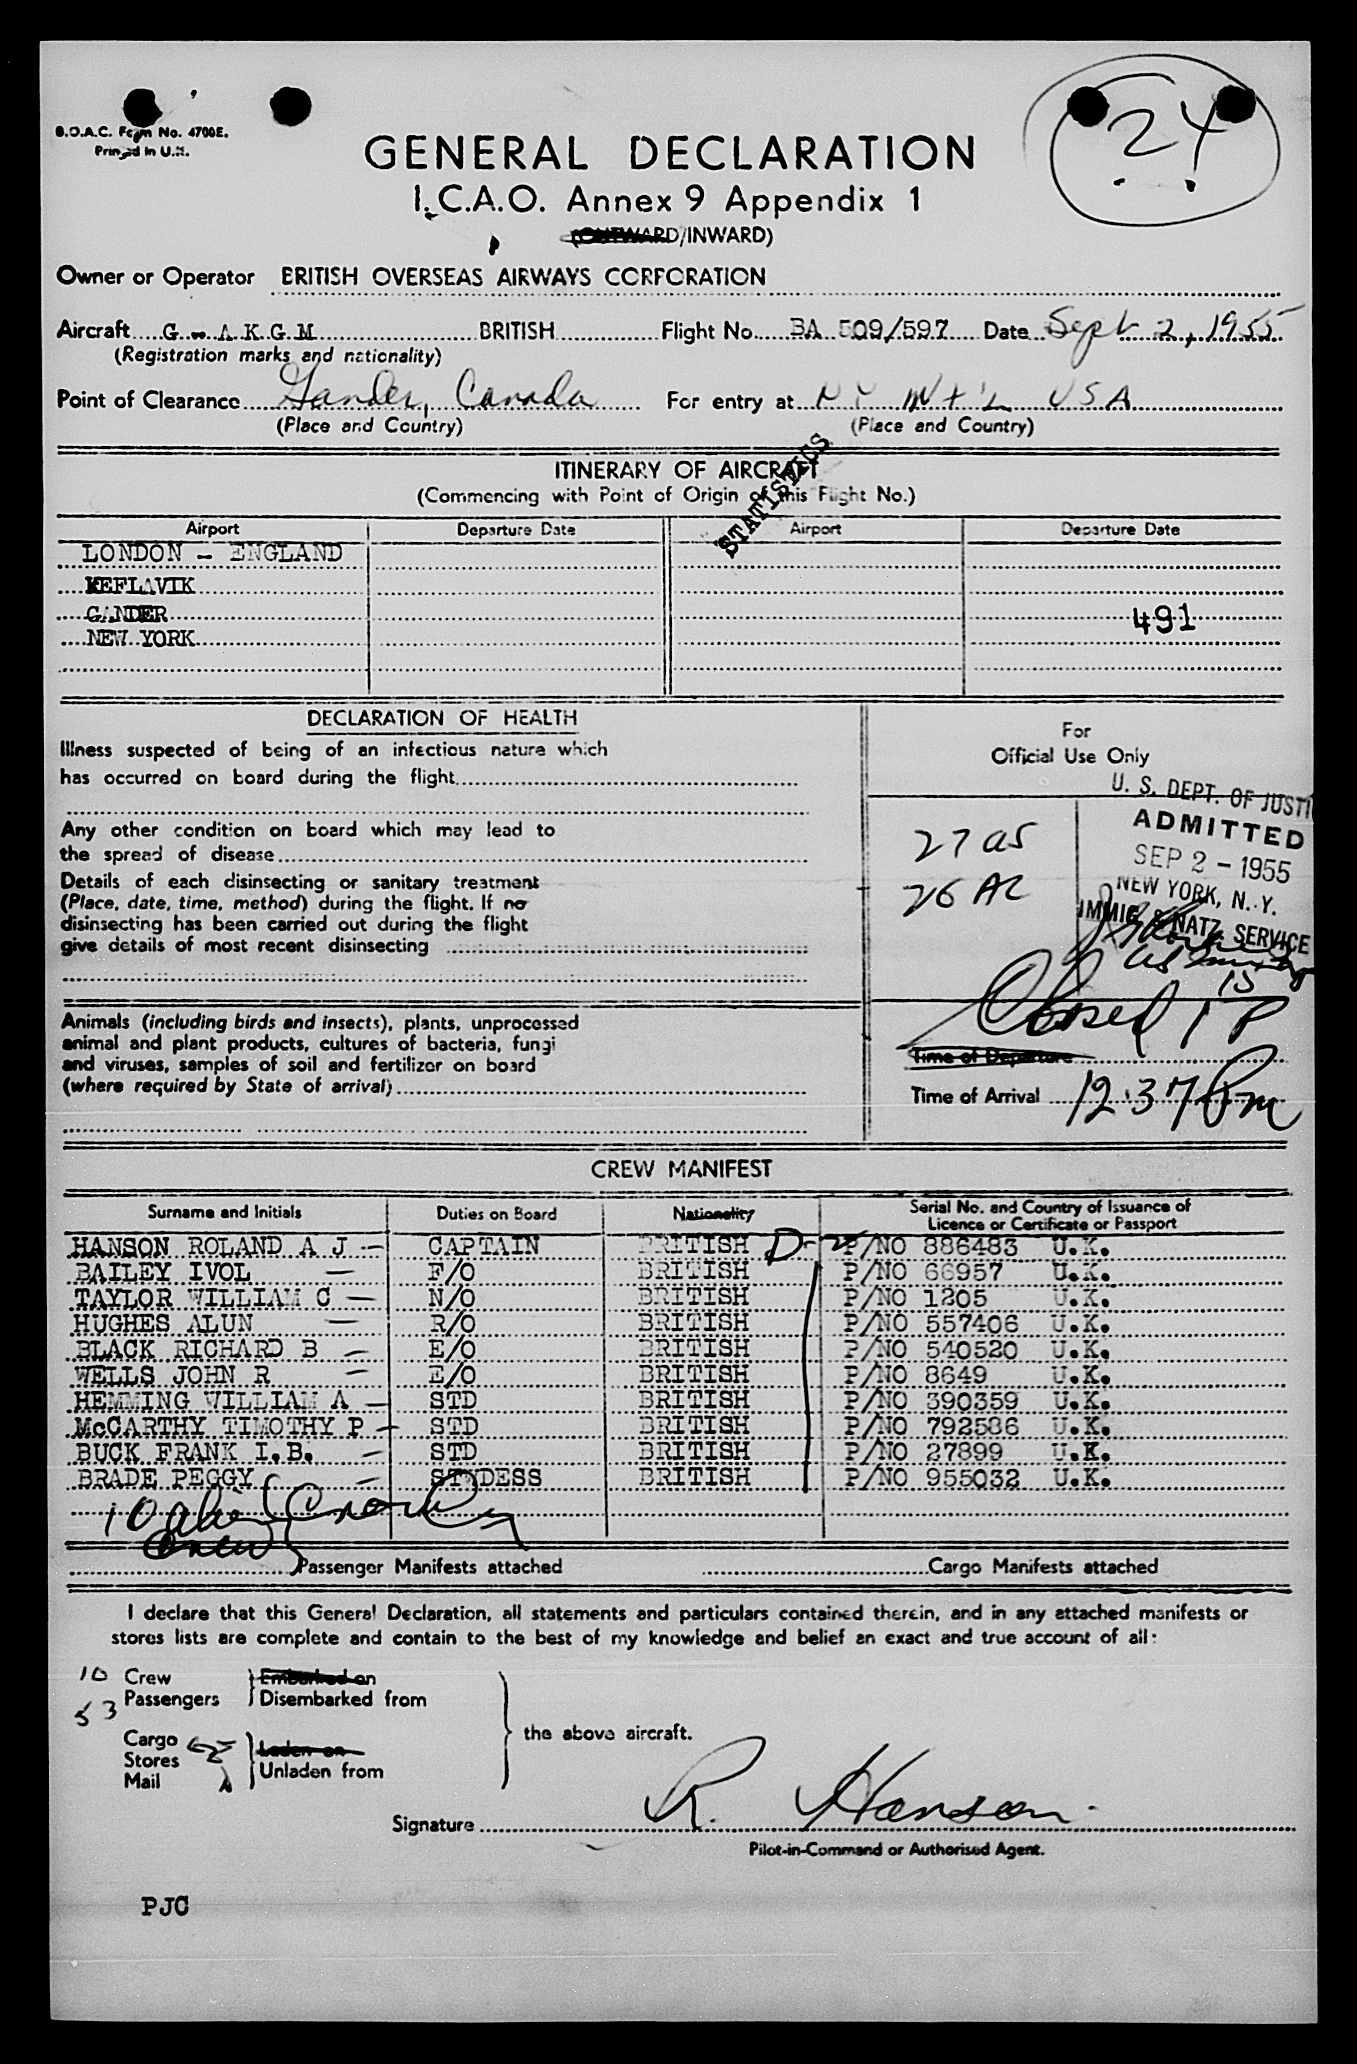 24
B.O.A.C. Form No. 4700E.
Printed in U.K.
GENERAL DECLARATION
I.C.A.O. Annex 9 Appendix 1
(OUTWARD/INWARD)
Owner or Operator BRITISH OVERSEAS AIRWAYS CORPORATION
Aircraft G - A K G M BRITISH Flight No. BA 509/597 Date Sept 2, 1955
(Registration marks and nationality)
Point of Clearance Gander, Canada For entry at NY INT'L USA
(Place and Country) (Place and Country)
STATISTICS
ITINERARY OF AIRCRAFT
(Commencing with Point of Origin of this Flight No.)
Airport Departure Date Airport Departure Date
LONDON - ENGLAND
KEFLAVIK
GANDER 491
NEW YORK
DECLARATION OF HEALTH
Illness suspected of being of an infectious nature which
has occurred on board during the flight
Any other condition on board which may lead to
the spread of disease
Details of each disinsecting or sanitary treatment
(Place, date, time, method) during the flight. If no
disinsecting has been carried out during the flight
give details of most recent disinsecting
Animals (including birds and insects), plants, unprocessed
animal and plant products, cultures of bacteria, fungi
and viruses, samples of soil and fertilizer on board
(where required by State of arrival)
For
Official Use Only
U. S. DEPT. OF JUSTI
ADMITTED
SEP 2 - 1955
NEW YORK, N. Y.
IMMIG. & NATZ. SERVICE
27 as
26 AC
Closed 1 P
Time of Departure
Time of Arrival 12.37 Pm
CREW MANIFEST
Surname and Initials Duties on Board Nationality Serial No. and Country of Issuance of
Licence or Certificate or Passport
HANSON ROLAND A J — CAPTAIN BRITISH D- P/NO 886483 U.K.
BAILEY IVOL — F/O BRITISH P/NO 66957 U.K.
TAYLOR WILLIAM C — N/O BRITISH P/NO 1205 U.K.
HUGHES ALUN — R/O BRITISH P/NO 557406 U.K.
BLACK RICHARD B — E/O BRITISH P/NO 540520 U.K.
WELLS JOHN R — E/O BRITISH P/NO 8649 U.K.
HEMMING WILLIAM A — STD BRITISH P/NO 390359 U.K.
McCARTHY TIMOTHY P — STD BRITISH P/NO 792586 U.K.
BUCK FRANK I.B. — STD BRITISH P/NO 27899 U.K.
BRADE PEGGY — STWDESS BRITISH P/NO 955032 U.K.
10 alien
crew
Passenger Manifests attached Cargo Manifests attached
I declare that this General Declaration, all statements and particulars contained therein, and in any attached manifests or
stores lists are complete and contain to the best of my knowledge and belief an exact and true account of all:
10 Crew Embarked on
53 Passengers Disembarked from
the above aircraft.
Cargo Laden on
Stores
Mail Unladen from
Signature R. Hanson
Pilot-in-Command or Authorised Agent.
PJC